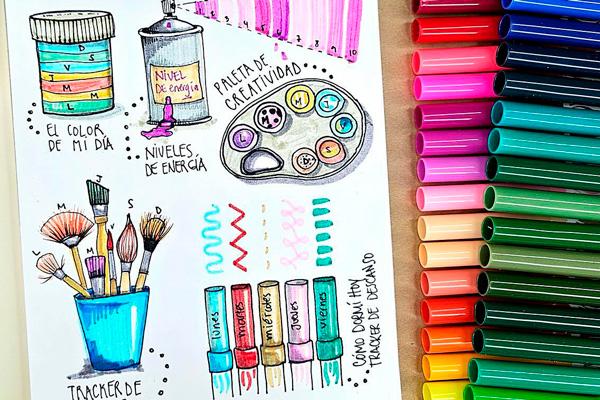 2 3 4 5 6 7 8 9 10
D
S
V
J
M
M
L
EL COLOR
DE MI DÍA
NIVEL
DE energía
NIVELES
DE ENERGÍA
PALETA DE
CREATIVIDAD
L
M
M
J
V
S
D
V
M
J
S
D
M
L
TRACKER DE
lunes
martes
miércoles
jueves
viernes
CÓMO DORMÍ HOY
TRACKER DE DESCANSO